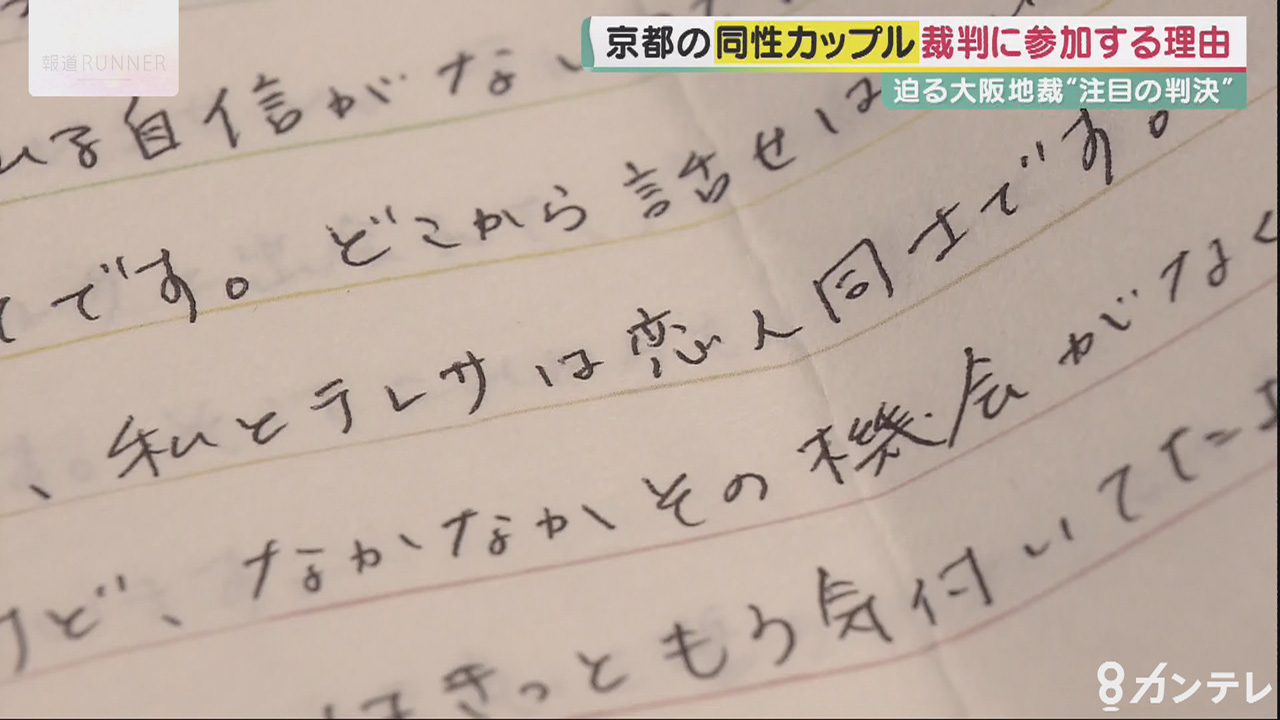 報道RUNNER
京都の同性カップル裁判に参加する理由
迫る大阪地裁“注目の判決”
る自信がない
てです。どこから話せば
、私とテレサは恋人同士です。
けど、なかなかその機会がなく
きっともう気付いてた
カンテレ